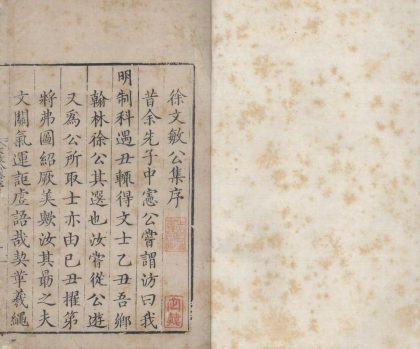 徐文敏公集序
昔余先子中憲公嘗謂汸曰我
明制科遇丑輒得文士乙丑吾鄉
翰林徐公其選也汝嘗從公遊
又為公所取士亦由己丑擢第
將弗圖紹厥美歟汝其勗之夫
文關氣運詎虛語哉契華羲繩